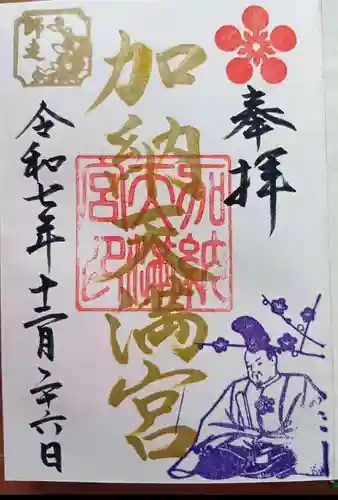 奉拝
加納天満宮
加納天満宮印
令和七年十二月二十六日
師走